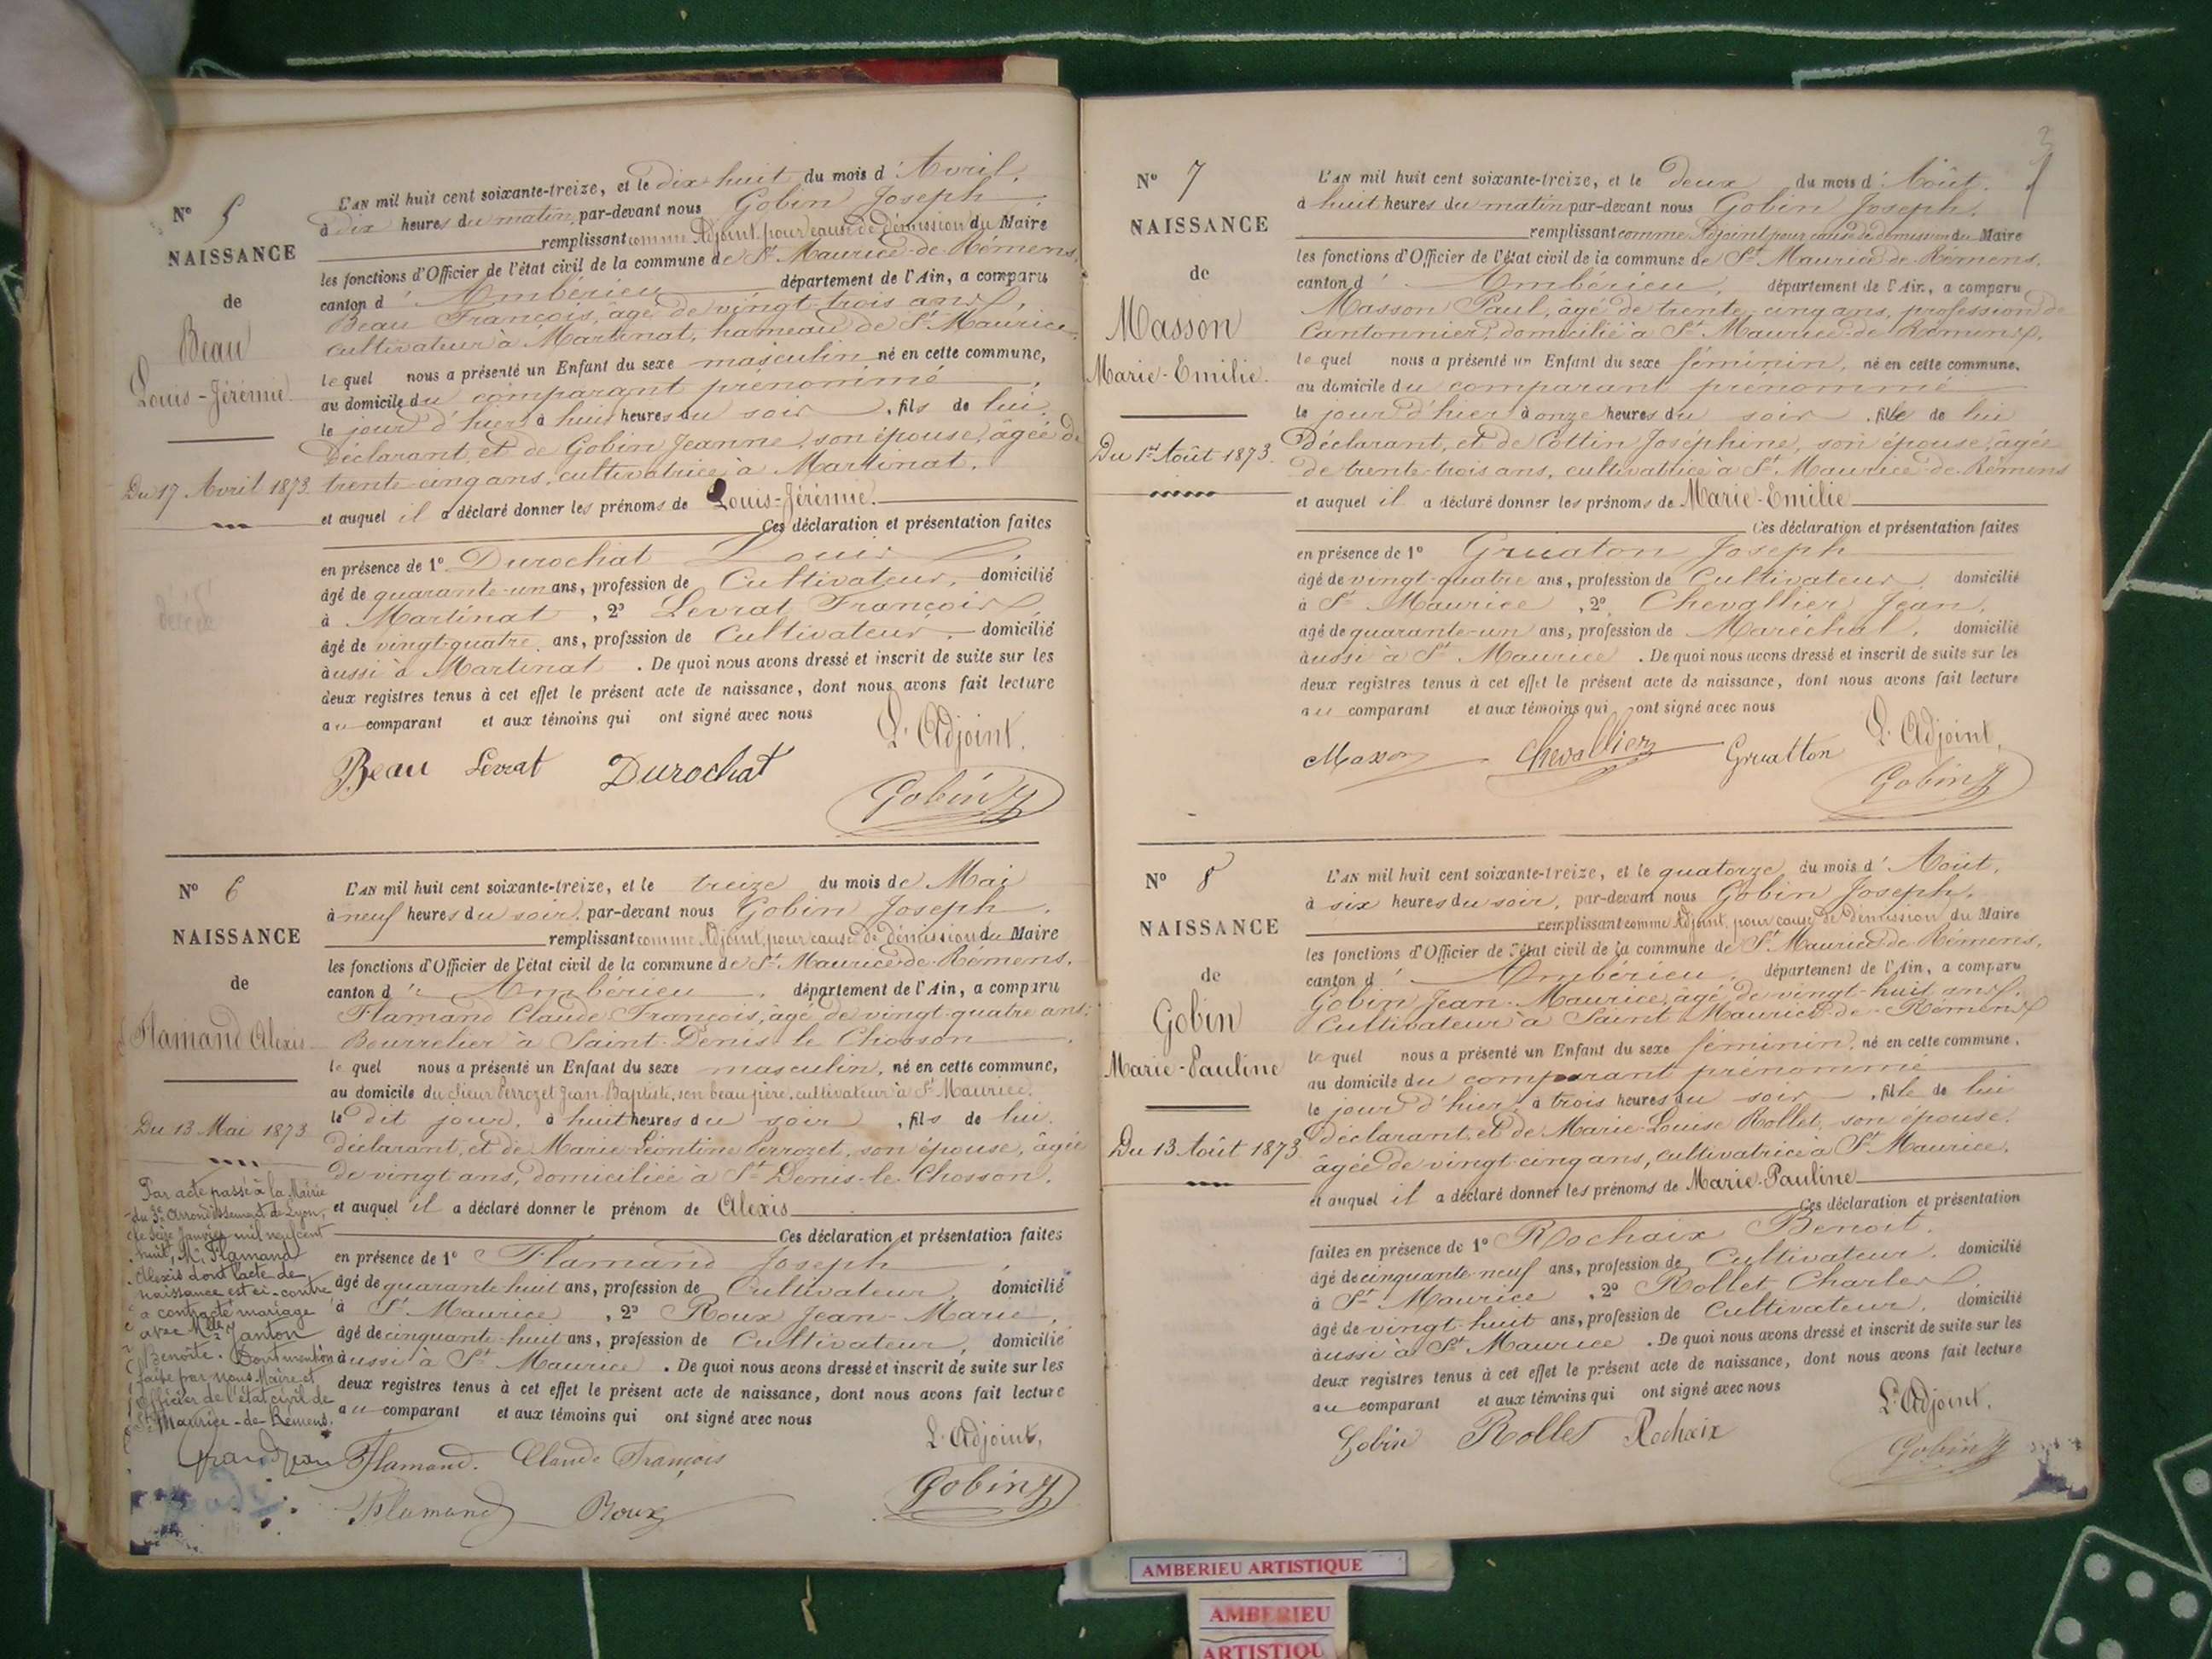 N° 5
NAISSANCE
de
Beau
Louis-Jérémie
Du 17 Avril 1873.
décédé
L'AN mil huit cent soixante-treize, et le dix-huit du mois d'Avril,
à dix heures du matin, par-devant nous Gobin Joseph
remplissant comme Adjoint, pour cause de démission du Maire
les fonctions d'Officier de l'état civil de la commune de St Maurice-de-Rémens,
canton d'Ambérieu département de l'Ain, a comparu
Beau François, âgé de vingt-trois ans,
cultivateur à Martinat, hameau de St Maurice
lequel nous a présenté un Enfant du sexe masculin né en cette commune,
au domicile du comparant prénommé
le jour d'hier à huit heures du soir, fils de lui
déclarant et de Gobin Jeanne, son épouse, âgée de
trente-cinq ans, cultivatrice à Martinat.
et auquel il a déclaré donner les prénoms de Louis-Jérémie.
Ces déclaration et présentation faites
en présence de 1° Durochat Louis
âgé de quarante-un ans, profession de Cultivateur, domicilié
à Martinat, 2° Levrat François
âgé de vingt-quatre ans, profession de Cultivateur, domicilié
aussi à Martinat. De quoi nous avons dressé et inscrit de suite sur les
deux registres tenus à cet effet le présent acte de naissance, dont nous avons fait lecture
au comparant et aux témoins qui ont signé avec nous
L'Adjoint.
Beau Levrat Durochat
Gobin J
N° 6
NAISSANCE
de
Flamand Alexis
Du 13 Mai 1873
Par acte passé à la Mairie
du 3e Arrondissement de Lyon,
le seize Janvier mil neuf cent
huit, Mr Flamand
Alexis dont l'acte de
naissance est ci-contre
a contracté mariage
avec Mlle Janton
Benoîte. Dont mention
faite par nous Maire et
officier de l'état civil de
St Maurice-de-Rémens.
Grandjean
L'AN mil huit cent soixante-treize, et le treize du mois de Mai
à neuf heures du soir, par-devant nous Gobin Joseph
remplissant comme Adjoint, pour cause de démission du Maire
les fonctions d'Officier de l'état civil de la commune de St Maurice-de-Rémens,
canton d'Ambérieu, département de l'Ain, a comparu
Flamand Claude François, âgé de vingt-quatre ans,
Bourrelier à Saint-Denis-le Chosson
lequel nous a présenté un Enfant du sexe masculin, né en cette commune,
au domicile du sieur Perrozet Jean Baptiste, son beau père, cultivateur à St Maurice,
le dit jour, à huit heures du soir, fils de lui
déclarant, et de Marie Léontine Perrozet, son épouse, âgée
de vingt ans, domiciliée à St Denis-le-Chosson.
et auquel il a déclaré donner le prénom de Alexis
Ces déclaration et présentation faites
en présence de 1° Flamand Joseph
âgé de quarante huit ans, profession de Cultivateur, domicilié
à St Maurice, 2° Roux Jean-Marie,
âgé de cinquante-huit ans, profession de Cultivateur, domicilié
aussi à St Maurice. De quoi nous avons dressé et inscrit de suite sur les
deux registres tenus à cet effet le présent acte de naissance, dont nous avons fait lecture
au comparant et aux témoins qui ont signé avec nous
L'Adjoint,
Flamand. Claude François
Gobin J
Flamand Roux
3
N° 7
NAISSANCE
de
Masson
Marie-Emilie.
Du 1er Août 1873.
L'AN mil huit cent soixante-treize, et le deux du mois d'Août,
à huit heures du matin par-devant nous Gobin Joseph,
remplissant comme Adjoint pour cause de démission du Maire
les fonctions d'Officier de l'état civil de la commune de St Maurice-de-Rémens,
canton d'Ambérieu, département de l'Ain, a comparu
Masson Paul, âgé de trente-cinq ans, profession de
Cantonnier, domicilié à St Maurice-de-Rémens,
lequel nous a présenté un Enfant du sexe féminin, né en cette commune,
au domicile du comparant prénommé
le jour d'hier à onze heures du soir, fille de lui
déclarant, et de Cottin Joséphine, son épouse, âgée
de trente-trois ans, cultivatrice à St Maurice-de-Rémens
et auquel il a déclaré donner les prénoms de Marie-Emilie
Ces déclaration et présentation faites
en présence de 1° Gruaton Joseph
âgé de vingt-quatre ans, profession de Cultivateur, domicilié
à St Maurice, 2° Chevallier Jean,
âgé de quarante-un ans, profession de Maréchal, domicilié
aussi à St Maurice. De quoi nous avons dressé et inscrit de suite sur les
deux registres tenus à cet effet le présent acte de naissance, dont nous avons fait lecture
au comparant et aux témoins qui ont signé avec nous
L'Adjoint,
Masson Chevallier Gruatton
Gobin J
N° 8
NAISSANCE
de
Gobin
Marie-Pauline
Du 13 Août 1873.
L'AN mil huit cent soixante-treize, et le quatorze du mois d'Août,
à six heures du soir, par-devant nous Gobin Joseph,
remplissant comme Adjoint, pour cause de démission du Maire
les fonctions d'Officier de l'état civil de la commune de St Maurice de Rémens,
canton d'Ambérieu, département de l'Ain, a comparu
Gobin Jean-Maurice, âgé de vingt-huit ans,
Cultivateur à Saint Maurice-de-Rémens
lequel nous a présenté un Enfant du sexe féminin, né en cette commune,
au domicile du comparant prénommé
le jour d'hier, à trois heures du soir, fille de lui
déclarant, et de Marie-Louise Rollet, son épouse,
âgée de vingt-cinq ans, cultivatrice à St Maurice.
et auquel il a déclaré donner les prénoms de Marie-Pauline
Ces déclaration et présentation
faites en présence de 1° Rochaix Benoit,
âgé de cinquante-neuf ans, profession de Cultivateur, domicilié
à St Maurice, 2° Rollet Charles
âgé de vingt-huit ans, profession de Cultivateur, domicilié
aussi à St Maurice. De quoi nous avons dressé et inscrit de suite sur les
deux registres tenus à cet effet le présent acte de naissance, dont nous avons fait lecture
au comparant et aux témoins qui ont signé avec nous
L'Adjoint.
Gobin Rollet Rochaix
Gobin J
AMBERIEU ARTISTIQUE
AMBERIEU
ARTISTIQU